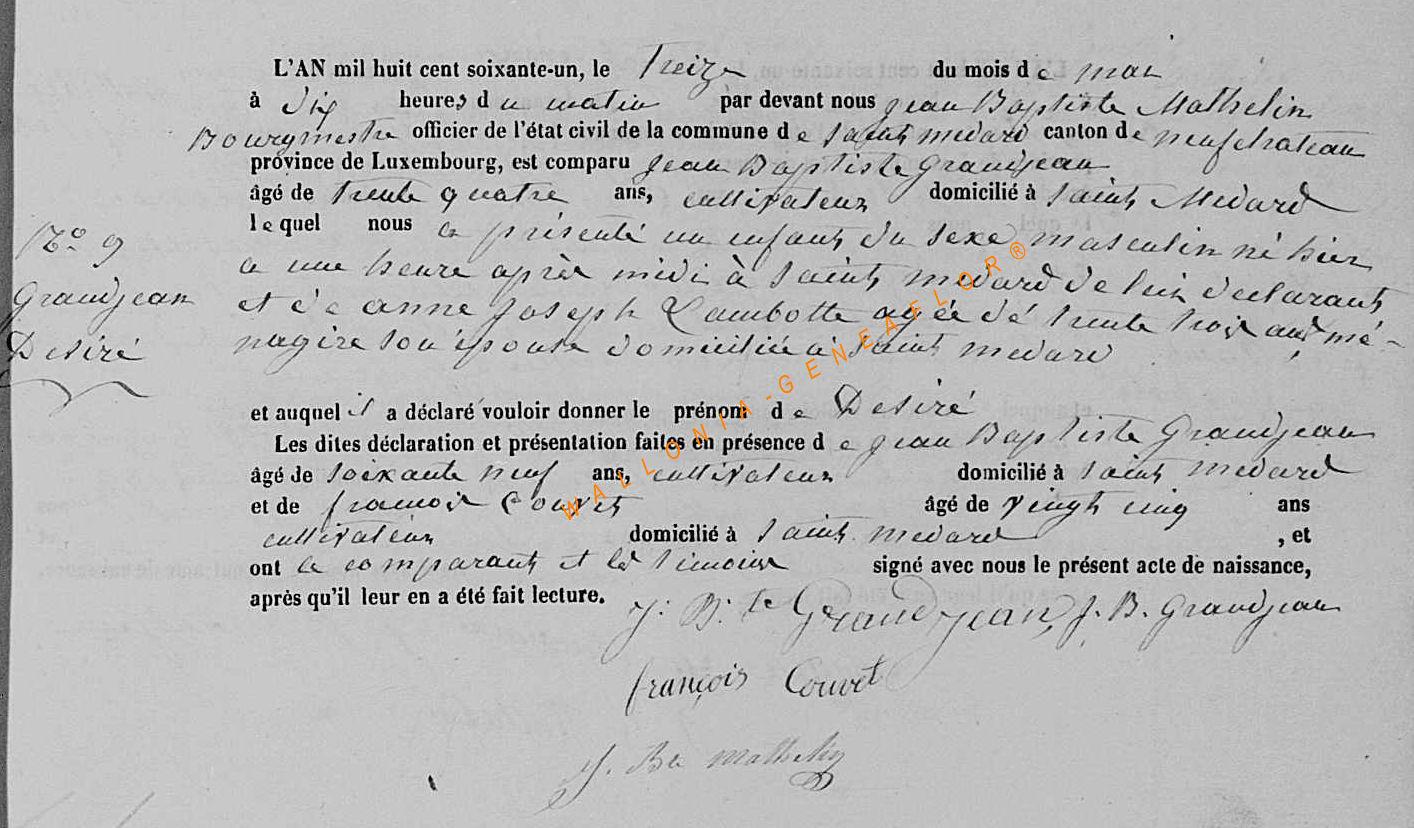 L'AN mil huit cent soixante-un, le Treize du mois de mai
à Dix heures du matin par devant nous jean Baptiste Mathelin
Bourgmestre officier de l'état civil de la commune de Saint medard canton de neufchateau
province de Luxembourg, est comparu Jean Baptiste Grandjean
âgé de trente quatre ans, cultivateur domicilié à Saint Medard
lequel nous a présenté un enfant du sexe masculin né hier
a une heure après midi à Saint medard de lui declarant
et de anne Joseph Lambotte agée dé trente trois ans mé-
nagire son épouse domiciliée à Saint medard
N° 9
Grandjean
Desiré
et auquel il a déclaré vouloir donner le prénom de Desiré
Les dites déclaration et présentation faites en présence de jean Baptiste Grandjean
âgé de soixante neuf ans, cultivateur domicilié à Saint medard
et de francois Couvet âgé de vingt cinq ans
cultivateur domicilié à Saint medard , et
ont le comparant et les témoins signé avec nous le présent acte de naissance,
après qu'il leur en a été fait lecture.
J. B.te Grandjean, J. B. Grandjean
françois Couvet
J. Bte mathelin
WALLONIA-GENEAFLOR®